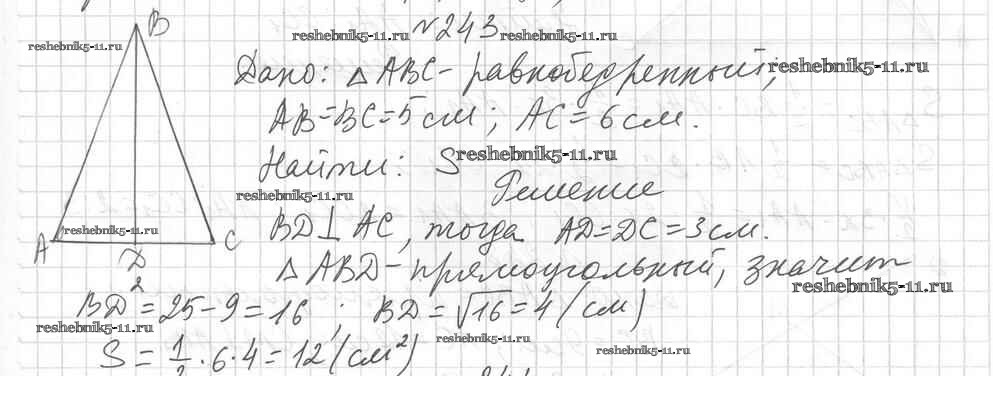 B
№243
reshebnik5-11.ru reshebnik5-11.ru
reshebnik5-11.ru
Дано: △ABC - равнобедренный, reshebnik5-11.ru
AB=BC=5 см; AC=6 см.
Найти: S reshebnik5-11.ru
reshebnik5-11.ru Решение
BD⊥AC, тогда AD=DC=3 см.
reshebnik5-11.ru
A D C
△ABD - прямоугольный, значит
reshebnik5-11.ru
BD²=25-9=16; BD=√16=4 (см)
reshebnik5-11.ru reshebnik5-11.ru
S=1/2·6·4=12 (см²) reshebnik5-11.ru